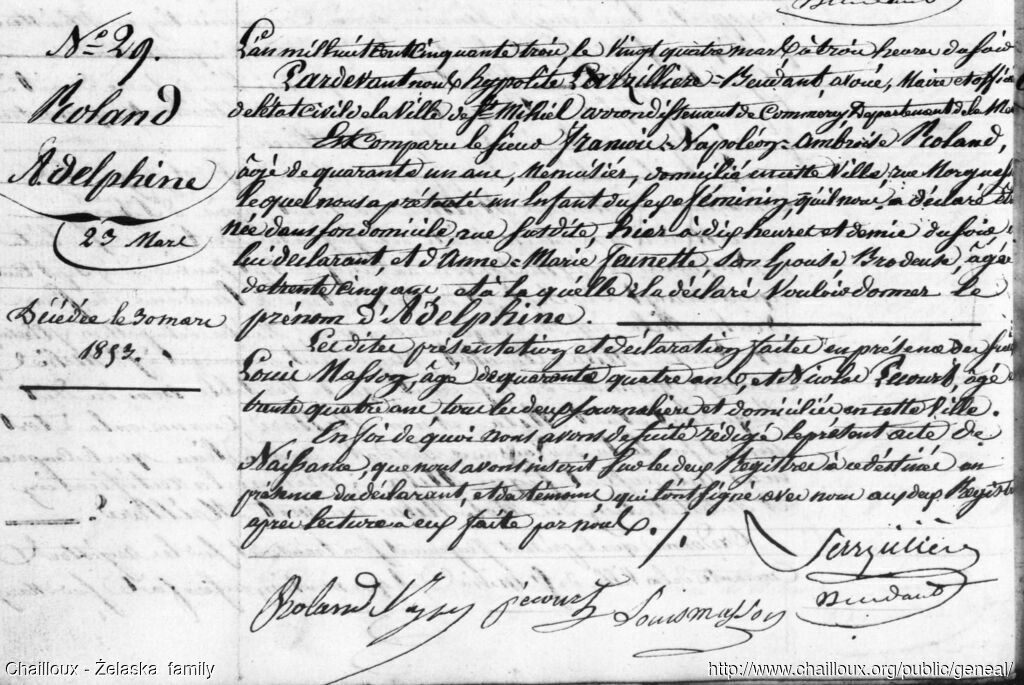 Nº 29.
Roland
Adelphine
23 Mars
Décédée le 30 mars
1853.
L'an mil huit cent cinquante trois, le vingt quatre mars à trois heures du soir
Pardevant nous hypolite -Beudant, avoué, Maire et offici
de l'état civil de la Ville de St Mihiel arrondissement de Commercy, Département de la Me
Est comparu le sieur François-Napoléon-Ambroise Roland,
âgé de quarante un ans, Menuisier, domicilié en cette Ville, rue
lequel nous a présenté un Enfant du sexe féminin, qu'il nous a déclaré être
née dans son domicile, rue susdite, hier à dix heures et demie du soir
lui déclarant, et d'Anne-Marie Jeunette son Epouse Brodeuse, âgée
de trente cinq ans, et à laquelle il a déclaré vouloir donner le
prénom d'Adelphine.
Les dites présentation et déclaration faites en présence des
Louis Masson, âgé de quarante quatre ans, et Nicolas Lecourt, âgé
trente quatre ans tous les deux Journaliers et domiciliés en cette Ville.
En foi de quoi nous avons de suite rédigé le présent acte de
Naissance, que nous avons inscrit sur les deux Registres à ce destinés en
présence du déclarant, et des témoins qui l'ont signé avec nous aux deux Registr
après lecture à eux faite par nous. /.
Roland Lecourt Louis masson
Beudant
Chailloux - Żelaska family
http://www.chailloux.org/public/geneal/